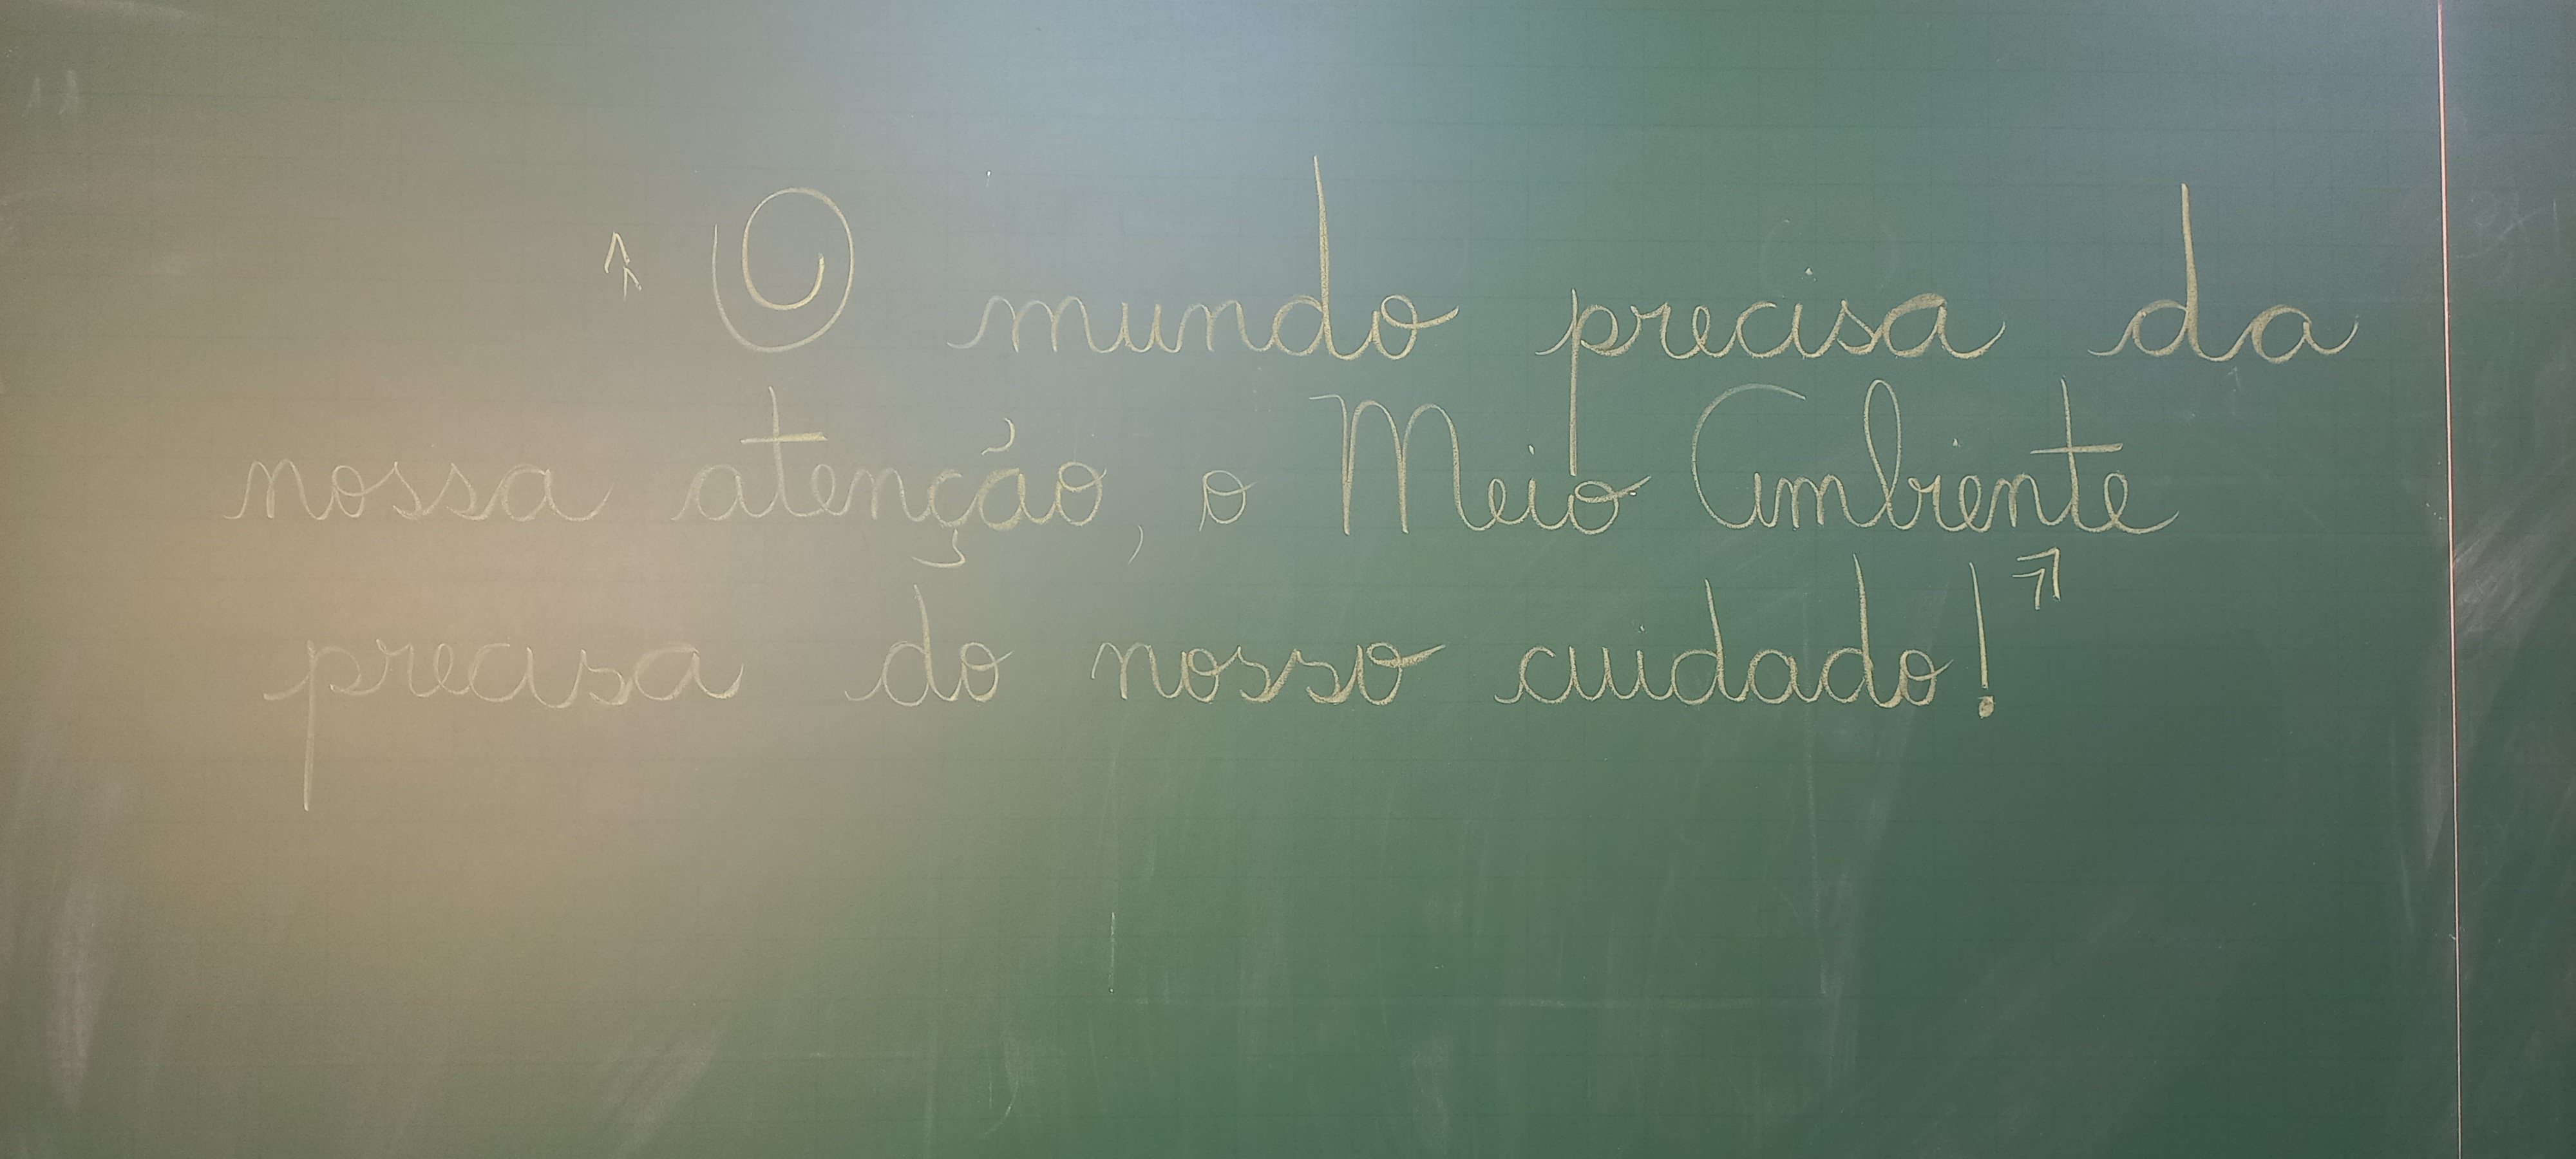 "O mundo precisa da
nossa atenção, o Meio Ambiente
precisa do nosso cuidado!"